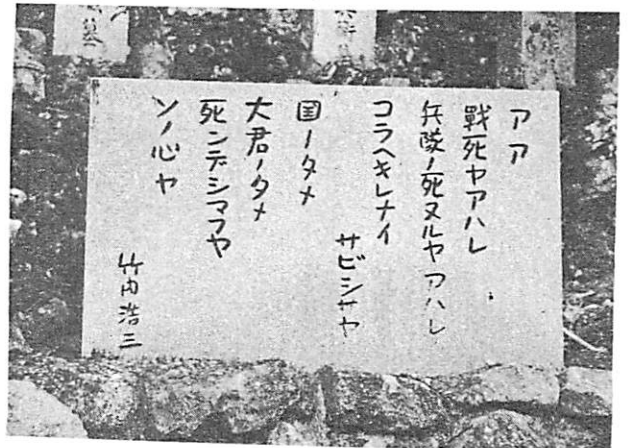 アア
戰死ヤアハレ
兵隊ノ死ヌルヤアハレ
コラヘキレナイ
サビシサヤ
国ノタメ
大君ノタメ
死ンデシマフヤ
ソノ心ヤ
竹内浩三